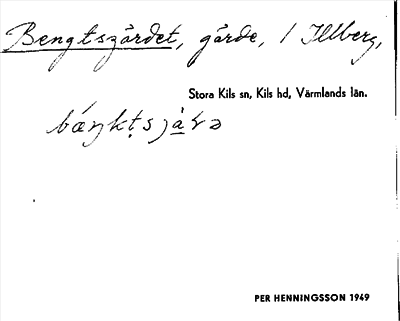 Bengtsgärdet, gärde, i Illberg,
Stora Kils sn, Kils hd, Värmlands län.
PER HENNINGSSON 1949